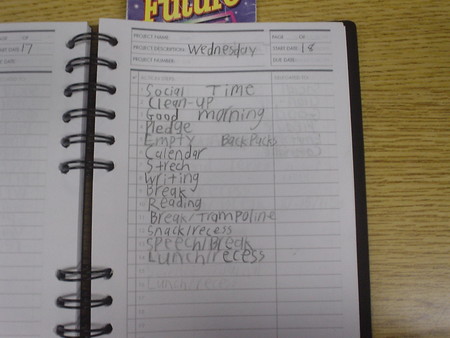 Future
OF
17
PROJECT NAME:
PAGE OF
PROJECT DESCRIPTION: Wednesday
START DATE 18
PROJECT NUMBER:
DUE DATE:
Social Time
Clean-up
Good morning
Pledge
Empty BackPacks
Calendar
Strech
Writing
Break
Reading
Break/Trampoline
Snack/recess
Speech/Break
Lunch/recess
Lunch/recess